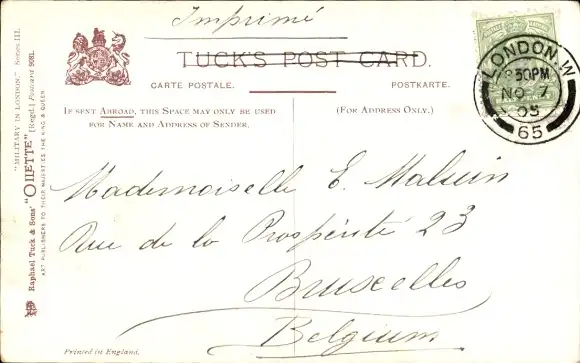 Imprimé
TUCK'S POST CARD.
CARTE POSTALE.
POSTKARTE.
IF SENT ABROAD, THIS SPACE MAY ONLY BE USED
FOR NAME AND ADDRESS OF SENDER.
(FOR ADDRESS ONLY.)
LONDON.W
8 30PM
NO 7
05
65
Mademoiselle E.
Rue de la Prospérité 23
Bruxelles
Belgium
Printed in England.
"MILITARY IN LONDON." Series III.
Raphael Tuck & Sons' "OILETTE" [Regd.] Postcard 9081.
ART PUBLISHERS TO THEIR MAJESTIES THE KING & QUEEN